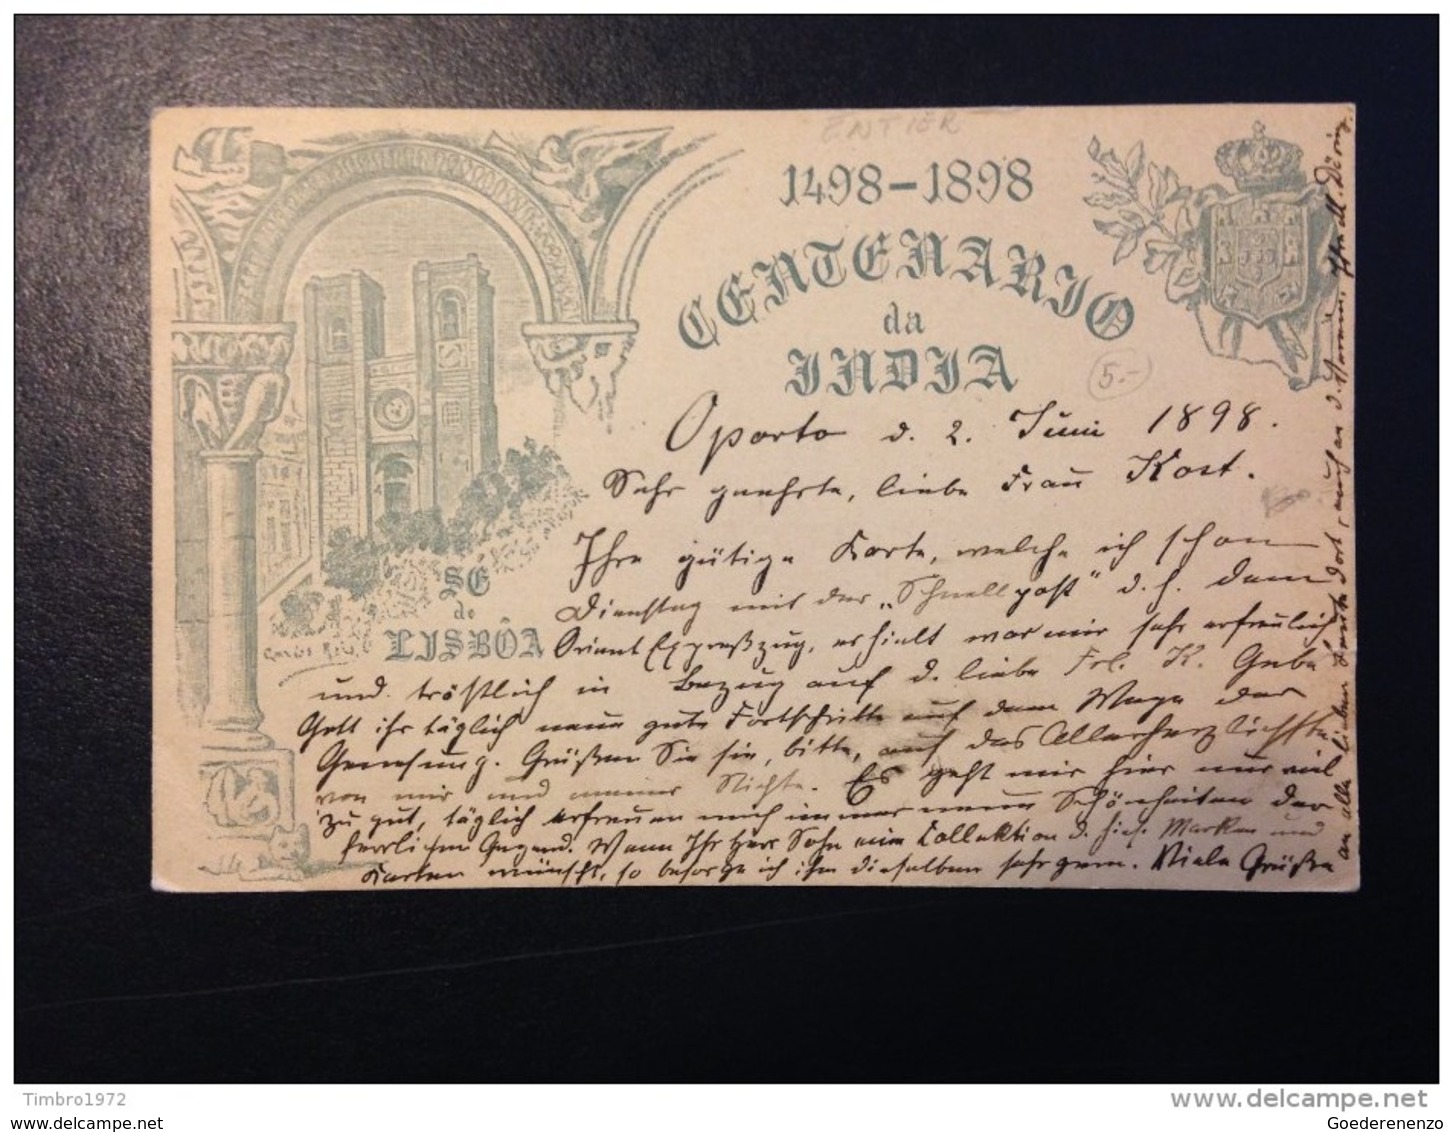 ENTIER
1498-1898
CENTENARIO
da
INDIA
5.-
SE
de
LISBÔA
Oporto d. 2. Juni 1898.
Sehr geehrte, liebe Frau Kost.
Ihre gütige Karte, welche ich schon
Dienstag mit der „Schnellpost" d. h. dem
Orient Expreßzug, erhielt war mir sehr erfreulich
und tröstlich in Bezug auf d. liebe Frl. K. Gebe
Gott ihr täglich neue gute Fortschritte auf dem Wege der
Genesung. Grüßen Sie sie, bitte, auf das Allerherzlichste
von mir und meiner Nichte. Es geht mir hier nur viel
zu gut, täglich erfreuen mich immer neue Schönheiten der
herrlichen Gegend. Wenn Ihr Herr Sohn eine Collektion d. hies. Marken und
Karten wünscht, so besorge ich ihm dieselben sehr gern. Viele Grüße
an alle lieben dort, auch an d.
Timbro1972
www.delcampe.net
Timbro1972
Goederenenzo